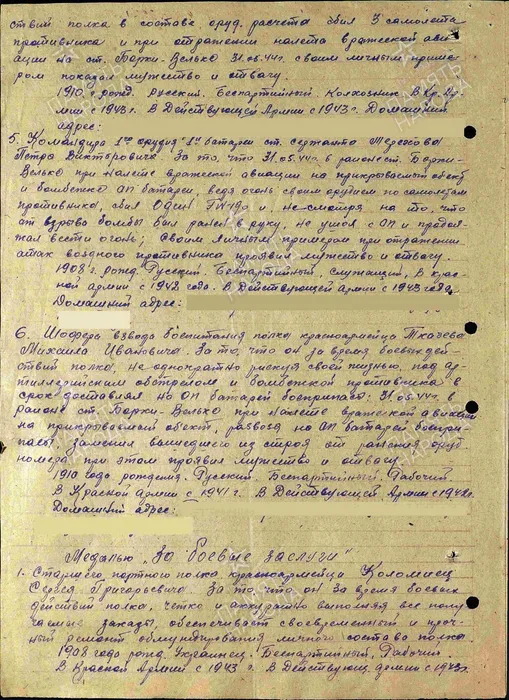 ствий полка в составе оруд. расчета сбил 3 самолета
противника и при отражении налета вражеской ави-
ации на ст. Борки-Велько 31.05.44г. своим личным приме-
ром показал мужество и отвагу.
1910 г. рожд. Русский. Беспартийный. Колхозник. В Кр. Ар-
мии с 1943 г. В Действующей Армии с 1943 г. Домашний
адрес:
5. Командира 1го орудия 1й батареи ст. сержанта Терехова
Петра Викторовича. За то, что 31.05.44г. в районе ст. Борки-
Велько при налете вражеской авиации на прикрываемый объект
и бомбежке ОП батареи, ведя огонь своим орудием по самолетам
противника, сбил один и не смотря на то, что
от взрыва бомбы был ранен в руку, не ушел с ОП и продол-
жал вести огонь. Своим личным примером при отражении
атак воздуного противника проявил мужество и отвагу.
1908 г. рожд. Русский. Беспартийный, служащий, В Крас-
ной армии с 1942 года. В Действующей Армии с 1943 года.
Домашний адрес:
6. Шофера взвода боепитания полка красноармейца Ткачева
Михаила Ивановича. За то, что он за время боевых дей-
ствий полка, не однократно рискуя своей жизнью, под ар-
тиллерийским обстрелом и бомбежкой противника в
срок доставлял на ОП батарей боеприпасы. 31.05.44г. в
районе ст. Борки-Велько при налете вражеской авиации
на прикрываемый объект, развозя по ОП батарей боепри-
пасы, заменил вышедшего из строя от ранения оруд.
номера, при этом проявил мужество и отвагу.
1910 года рождения. Русский. Беспартийный. Рабочий
В Красной Армии с 1941 г. В Действующей Армии с 1942г.
Домашний адрес:
Медалью "За боевые заслуги"
1. Старшего портного полка красноармейца Коломиец
Сергея Григорьевича. За то, что он за время боевых
действий полка, четко и аккуратно выполняя все полу-
чаемые заказы, обеспечивает своевременный и проч-
ный ремонт обмундирования личного состава полка
1908 года рожд. Украинец. Беспартийный. Рабочий.
В Красной Армии с 1943 г. В Действующ. армии с 1943г.